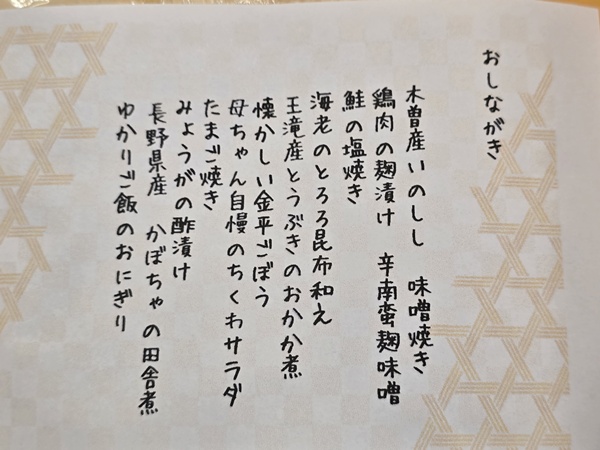 おしながき
木曽産いのしし　味噌焼き
鶏肉の麹漬け　辛南蛮麹味噌
鮭の塩焼き
海老のとろろ昆布和え
王滝産とうぶきのおかか煮
懐かしい金平ごぼう
母ちゃん自慢のちくわサラダ
たまご焼き
みょうがの酢漬け
長野県産　かぼちゃの田舎煮
ゆかりご飯のおにぎり